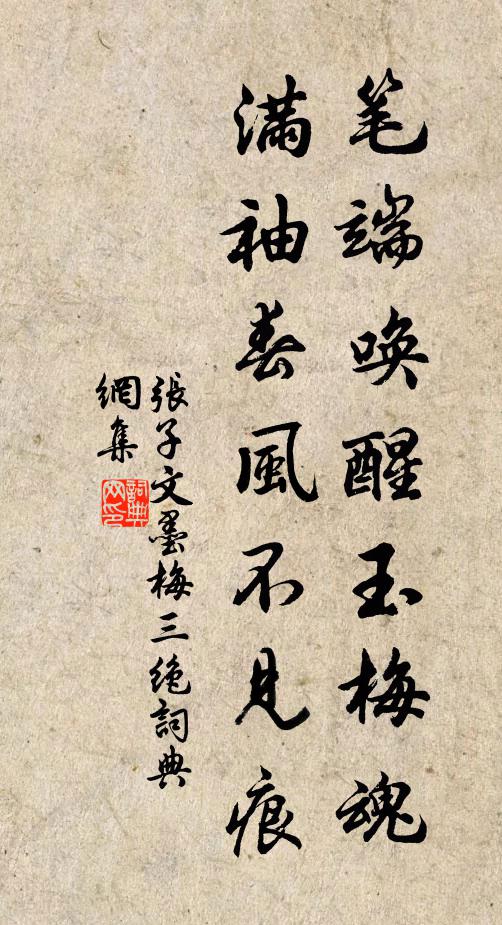 笔端唤醒玉梅魂
满袖春風不见痕
張子文墨梅三絶詞典
網集
詞典
网印